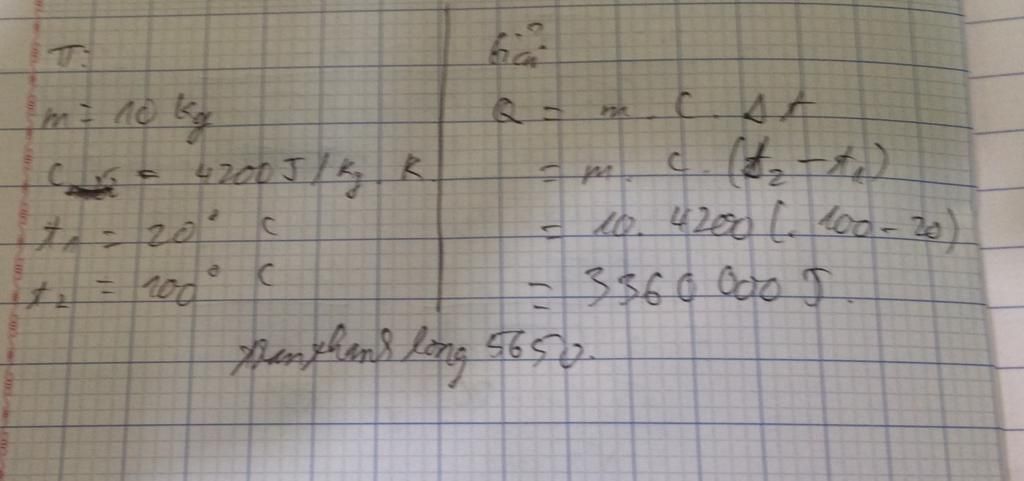 T:
m = 10 kg
C = 4200 J/kg K
t₁ = 20° C
t₂ = 100° C
Giải
Q = m . C . Δt
= m. c. (t₂ - t₁)
= 10. 4200 (. 100 - 20)
= 3360 000 J.
long 5650.